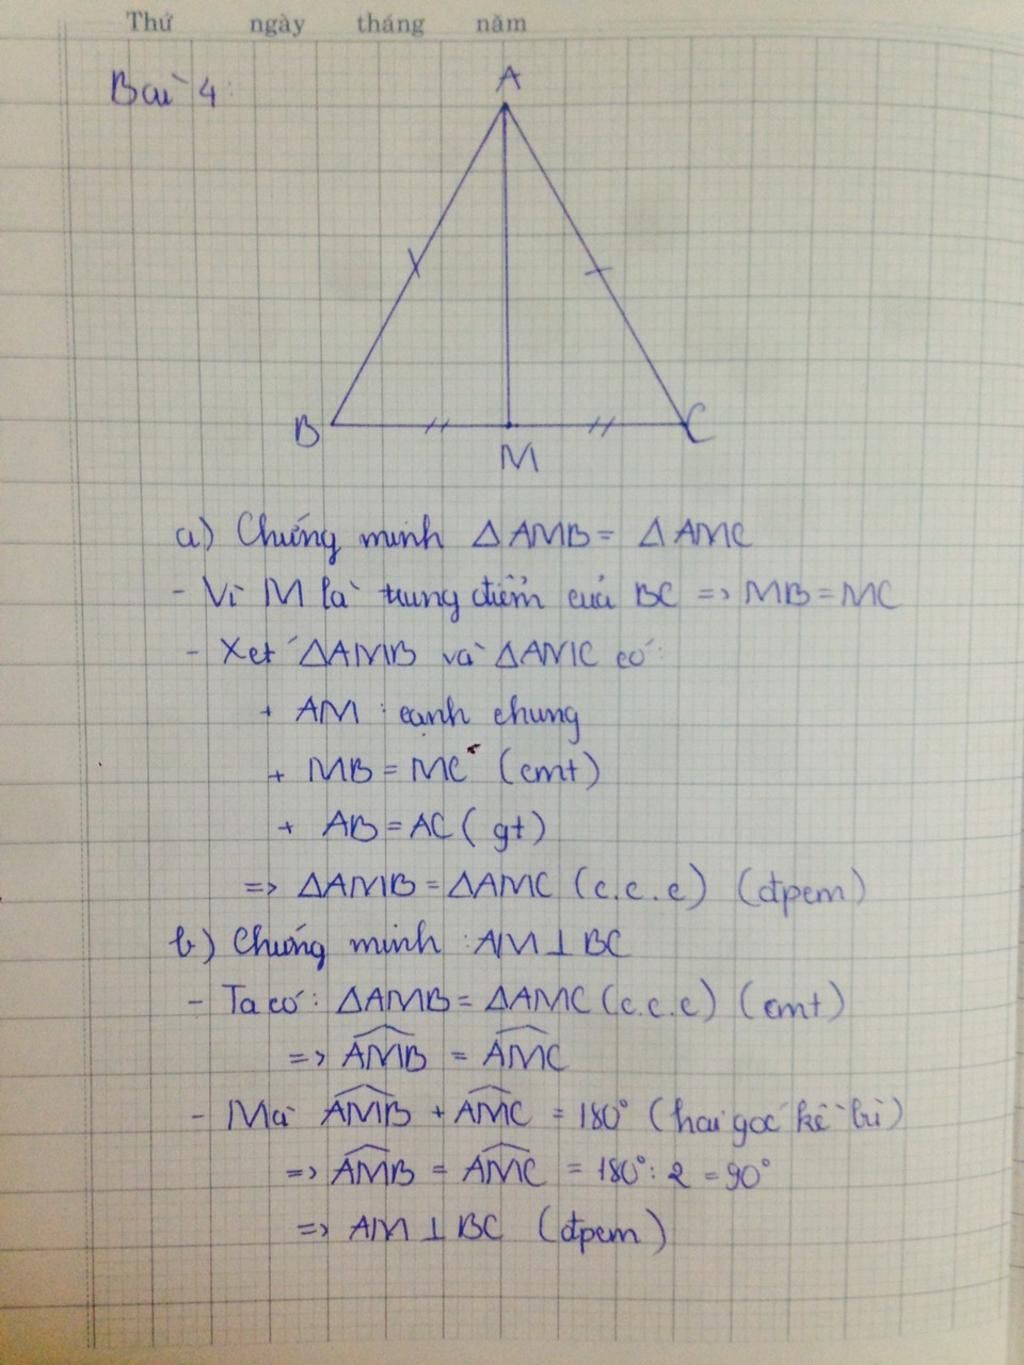 Thứ ngày tháng năm
Bài 4:
A
B
C
M
a) Chứng minh ΔAMB = ΔAMC
- Vì M là trung điểm của BC => MB = MC
- Xét ΔAMB và ΔAMC có:
+ AM : cạnh chung
+ MB = MC (cmt)
+ AB = AC (gt)
=> ΔAMB = ΔAMC (c.c.c) (đpcm)
b) Chứng minh : AM ⊥ BC
- Ta có : ΔAMB = ΔAMC (c.c.c) (cmt)
=> \widehat{AMB} = \widehat{AMC}
- Mà \widehat{AMB} + \widehat{AMC} = 180° (hai góc kề bù)
=> \widehat{AMB} = \widehat{AMC} = 180° : 2 = 90°
=> AM ⊥ BC (đpcm)